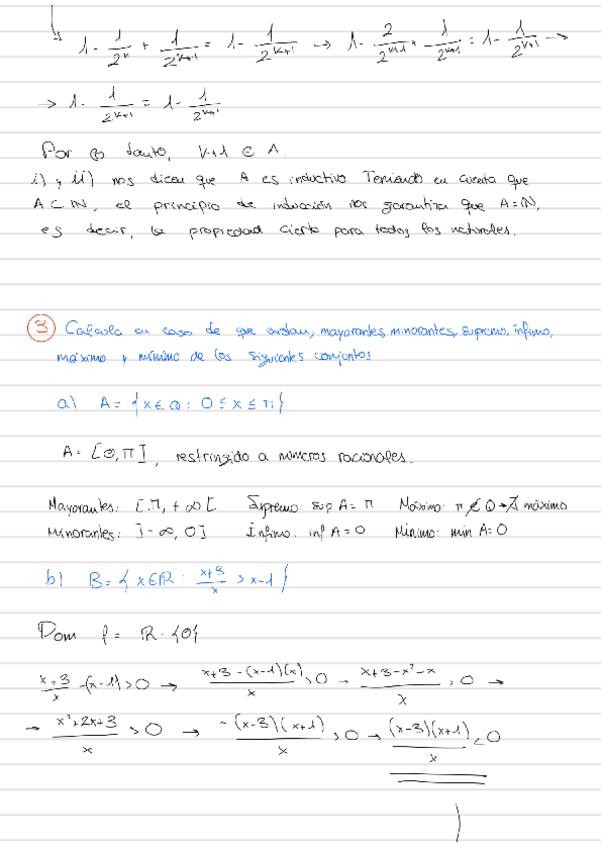 1 - 1/2^k + 1/2^(k+1) = 1 - 1/2^(k+1) → 1 - 2/2^(k+1) + 1/2^(k+1) = 1 - 1/2^(k+1) →
→ 1 - 1/2^(k+1) = 1 - 1/2^(k+1)
Por lo tanto, k+1 ∈ A.
i) y ii) nos dicen que A es inductivo Teniendo en cuenta que
A ⊂ ℕ, el principio de inducción nos garantiza que A=ℕ,
es decir, la propiedad cierta para todos los naturales.
③ Calcula en caso de que existan, mayorantes, minorantes, supremo, ínfimo,
máximo y mínimo de los siguientes conjuntos
a) A = {x ∈ ℚ : 0 ≤ x ≤ π}
A = [0, π], restringido a números racionales.
Mayorantes: [π, +∞[ Supremo: sup A = π Máximo: π ∉ ℚ → ∄ máximo
Minorantes: ]-∞, 0] Ínfimo: inf A = 0 Mínimo: min A = 0
b) B = {x ∈ ℝ : (x+3)/x > x-1}
Dom f = ℝ - {0}
(x+3)/x - (x-1) > 0 → (x+3-(x-1)(x))/x > 0 → (x+3-x²-x)/x > 0 →
→ (x²+2x+3)/x > 0 → -(x-3)(x+1)/x > 0 → (x-3)(x+1)/x < 0